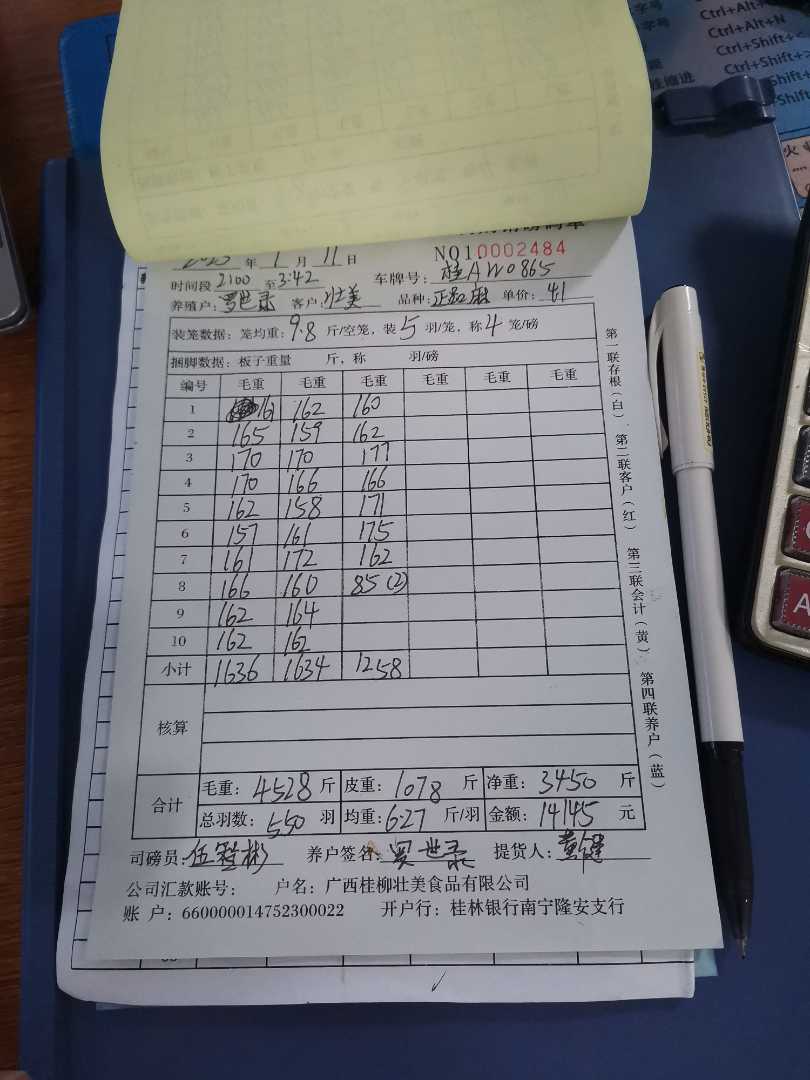 字号
Ctrl+Alt+
Ctrl+Alt+N
Ctrl+Shift+
Ctrl+Shift+
Shift+
2023 年 1 月 11 日
NO10002484
时间段 2100 至 3:42 车牌号: 桂AW0865
养殖户: 罗世录 客户: 壮美 品种: 单价: 4.1
装笼数据: 笼均重: 9.8 斤/空笼, 装 5 羽/笼, 称 4 笼/磅
捆脚数据: 板子重量 斤, 称 羽/磅
编号 毛重 毛重 毛重 毛重 毛重 毛重
1 161 162 160
2 165 159 162
3 170 170 177
4 170 166 166
5 162 158 171
6 157 161 175
7 161 172 162
8 166 160 85(2)
9 162 164
10 162 162
小计 1636 1634 1258
核算
合计
毛重: 4528 斤 皮重: 1078 斤 净重: 3450 斤
总羽数: 550 羽 均重: 6.27 斤/羽 金额: 14145 元
司磅员: 养户签名: 罗世录 提货人: 黄健
公司汇款账号: 户名: 广西桂柳壮美食品有限公司
账 户: 660000014752300022 开户行: 桂林银行南宁隆安支行
第一联存根(白) 第二联客户(红) 第三联会计(黄) 第四联养户(蓝)